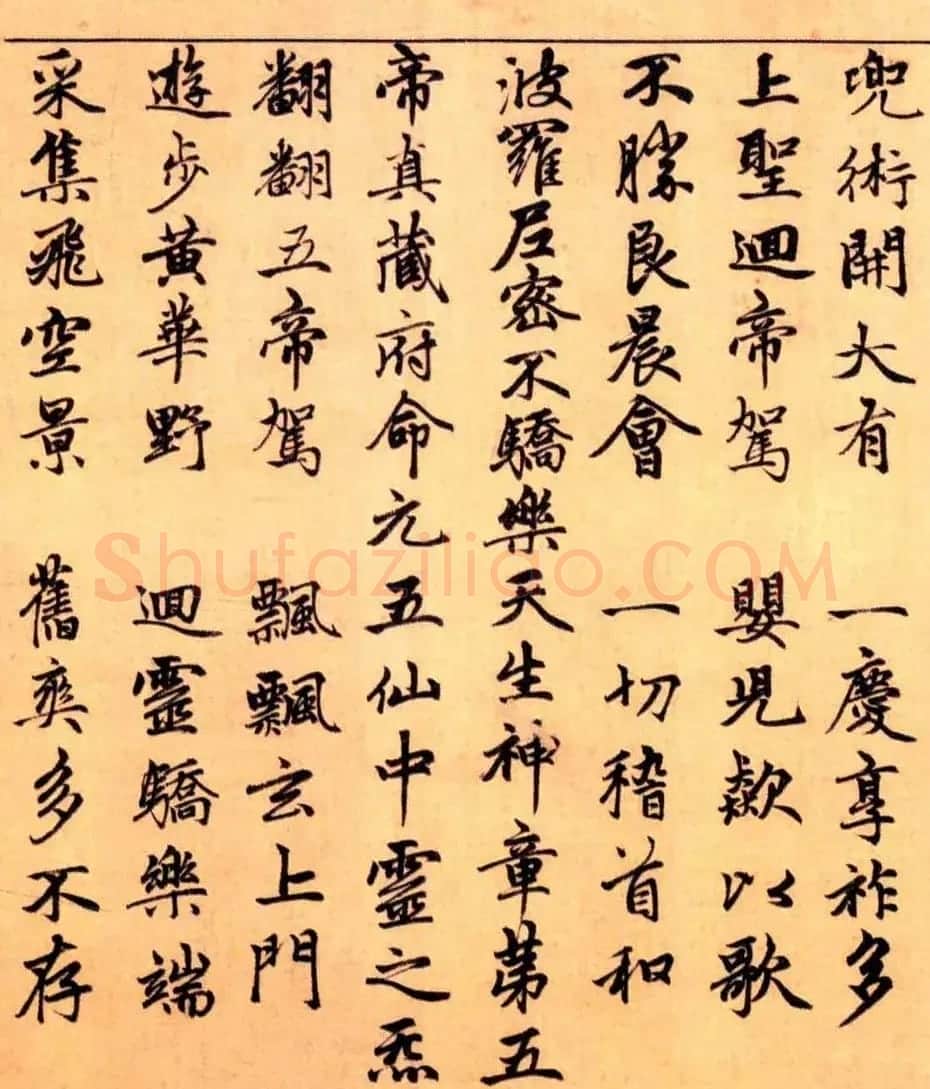 兜術開大有 一慶享祚多
上聖迴帝駕 嬰兒歘以歌
不勝良晨會 一切稽首和
波羅尼密不驕樂天生神章第五
帝真藏府命元五仙中靈之炁
翻翻五帝駕 飄飄玄上門
遊步黃華野 迴靈驕樂端
采集飛空景 舊爽多不存
Shufaziliao.COM